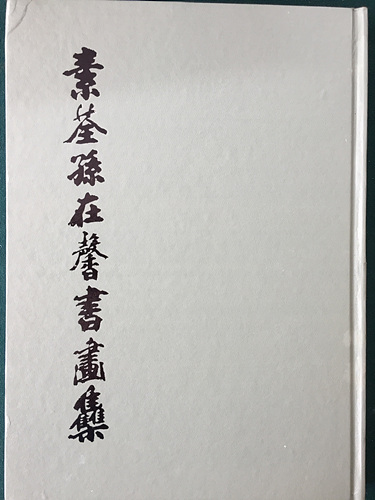 素荃孫在馨書畫集